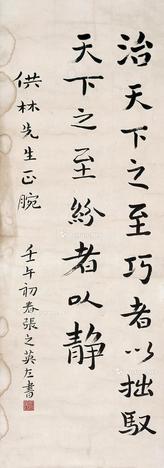 治天下之至巧者以拙馭
天下之至紛者以静
供林先生正腕
壬午初春張之英左書